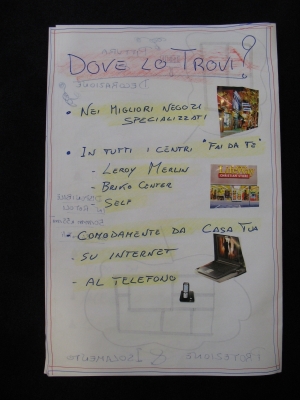 DOVE LO TROVI?
• NEI MIGLIORI NEGOZI
SPECIALIZZATI
• IN TUTTI I CENTRI "FAI DA TE"
- LEROY MERLIN
- BRIKO CENTER
- SELF
• COMODAMENTE DA CASA TUA
- SU INTERNET
- AL TELEFONO